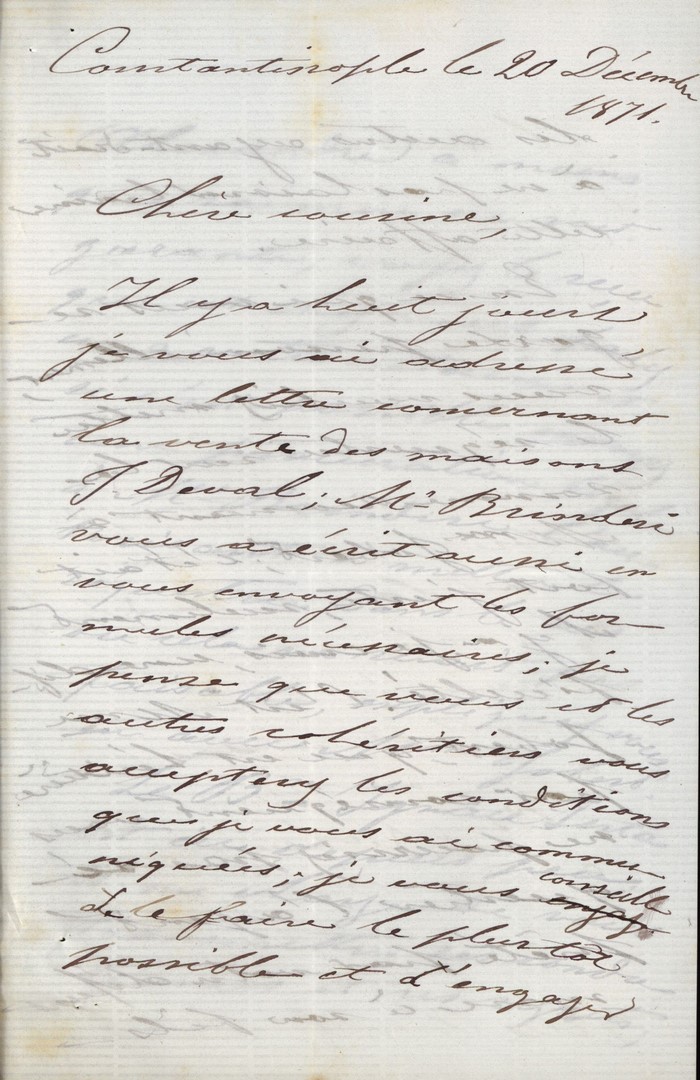 Constantinople le 20 Décembre
1871.
Chère cousine,
Il y a huit jours
je vous ai adressé
une lettre concernant
la vente des maisons
J Deval; Mr Brindesi
vous a écrit aussi en
vous envoyant les for
mules nécessaires; je
pense que vous et les
autres cohéritiers vous
accepterez les conditions
que je vous ai commu-
niquées; je vous conseille
de le faire le plustôt
possible et d'engager